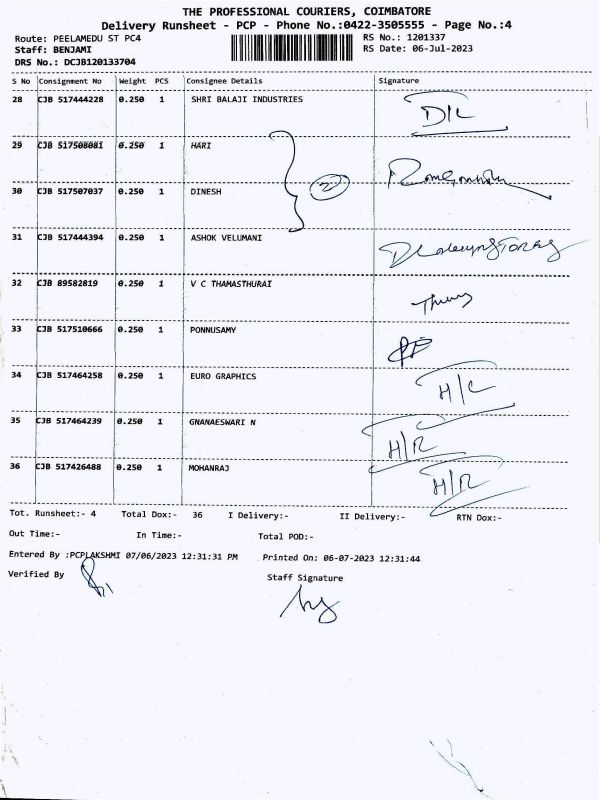 THE PROFESSIONAL COURIERS, COIMBATORE
Delivery Runsheet - PCP - Phone No.:0422-3505555 - Page No.:4
Route: PEELAMEDU ST PC4 RS No.: 1201337
Staff: BENJAMI RS Date: 06-Jul-2023
DRS No.: DCJB120133704
S No Consignment No Weight PCS Consignee Details Signature
28 CJB 517444228 0.250 1 SHRI BALAJI INDUSTRIES D/L
29 CJB 517508081 0.250 1 HARI
30 CJB 517507037 0.250 1 DINESH
2
31 CJB 517444394 0.250 1 ASHOK VELUMANI
32 CJB 89582819 0.250 1 V C THAMASTHURAI
33 CJB 517510666 0.250 1 PONNUSAMY
34 CJB 517464258 0.250 1 EURO GRAPHICS H/C
35 CJB 517464239 0.250 1 GNANAESWARI N H/R
36 CJB 517426488 0.250 1 MOHANRAJ H/R
Tot. Runsheet:- 4 Total Dox:- 36 I Delivery:- II Delivery:- RTN Dox:-
Out Time:- In Time:- Total POD:-
Entered By :PCPLAKSHMI 07/06/2023 12:31:31 PM Printed On: 06-07-2023 12:31:44
Verified By Staff Signature